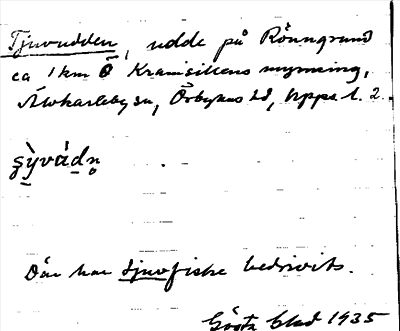 Tjuvudden, udde på Rönngrund
ca 1 km Ö Kransikens mynning,
Älvkarleby sn, Örbyhus hd, Upps. l.
s̱ỳvád̥n̥
Där har tjuvfiske bedrivits.
Gösta Blad 1935